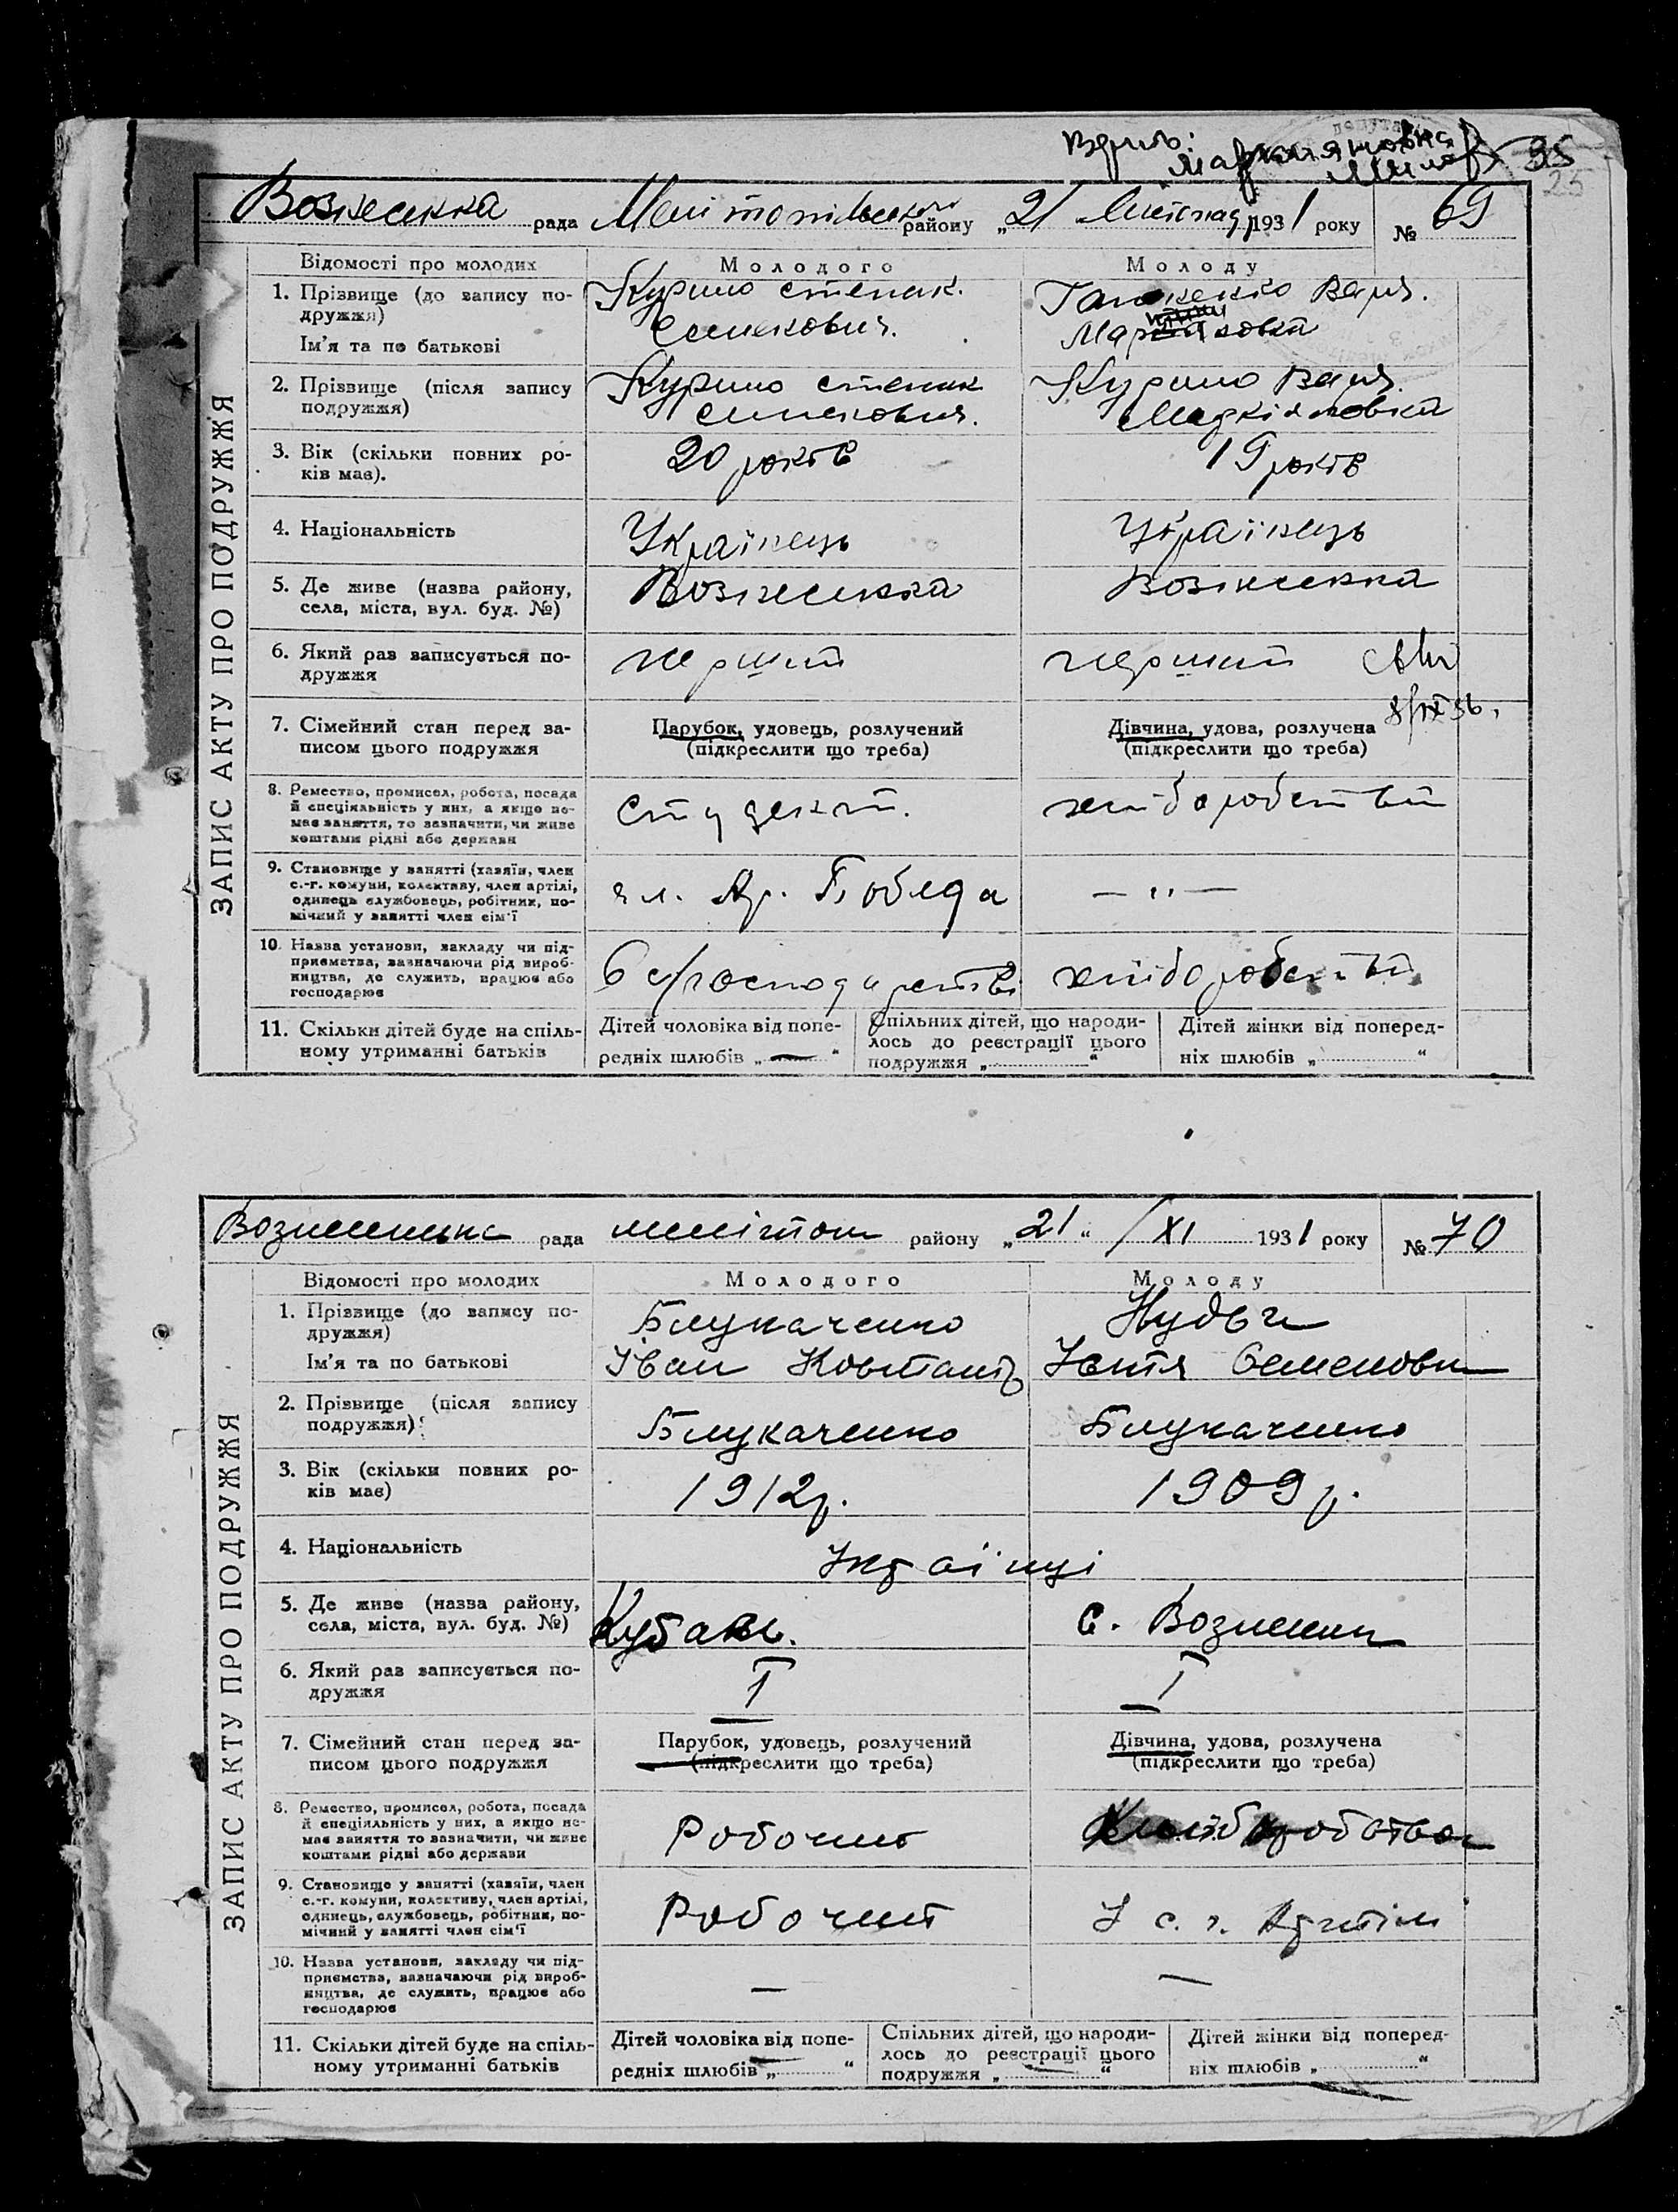 35
25
Вознесенка рада Мелітопільського району „21 Листопад 1931 року № 69
ЗАПИС АКТУ ПРО ПОДРУЖЖЯ
Відомості про молодих Молодого Молоду
1. Прізвище (до запису по-
дружжя)
Ім'я та по батькові
Курило степан.
Семенович.
Варя.
2. Прізвище (після запису
подружжя)
Курило степан
семенович.
Курило Варя.
Маркіяновна
3. Вік (скільки повних ро-
ків має).
20 років
19 років
4. Національність
Українець
Українець
5. Де живе (назва району,
села, міста, вул. буд. №)
Вознесенка
Вознесенка
6. Який раз записується по-
дружжя
перший
перший
8/IX 36.
7. Сімейний стан перед за-
писом цього подружжя
Парубок, удовець, розлучений
(підкреслити що треба)
Дівчина, удова, розлучена
(підкреслити що треба)
8. Ремество, промисел, робота, посада
й спеціяльність у них, а якщо не-
має заняття, то зазначити, чи живе
коштами рідні або держави
студент.
хліборобство
9. Становище у занятті (хазяїн, член
с.-г. комуни, колективу, член артілі,
одинець службовець, робітник, по-
мічний у занятті член сім'ї
чл. Ар. Победа
— „ —
10. Назва установи, закладу чи під-
приємства, зазначаючи рід вироб-
ництва, де служить, працює або
господарює
В с/господарстві
хліборобство
11. Скільки дітей буде на спіль-
ному утриманні батьків
Дітей чоловіка від попе-
редніх шлюбів „ — “
Спільних дітей, що народи-
лось до реєстрації цього
подружжя „ “
Дітей жінки від поперед-
ніх шлюбів „ “
рада району „21“ / XI 1931 року № 70
ЗАПИС АКТУ ПРО ПОДРУЖЖЯ
Відомості про молодих Молодого Молоду
1. Прізвище (до запису по-
дружжя)
Ім'я та по батькові
Блукаченко
Іван
Нудьга
Семеновн
2. Прізвище (після запису
подружжя)
Блукаченко
Блукаченко
3. Вік (скільки повних ро-
ків має)
1912р.
1909 р.
4. Національність
Українці
5. Де живе (назва району,
села, міста, вул. буд. №)
Кубань.
с.
6. Який раз записується по-
дружжя
I
I
7. Сімейний стан перед за-
писом цього подружжя
Парубок, удовець, розлучений
(підкреслити що треба)
Дівчина, удова, розлучена
(підкреслити що треба)
8. Ремество, промисел, робота, посада
й спеціяльність у них, а якщо не-
має заняття то зазначити, чи живе
коштами рідні або держави
Робочий
9. Становище у занятті (хазяїн, член
с.-г. комуни, колективу, член артілі,
одинець, службовець, робітник, по-
мічний у занятті член сім'ї
Робочий
У с. г. Артіли
10. Назва установи, закладу чи під-
приємства, зазначаючи рід вироб-
ництва, де служить, працює або
господарює
—
—
11. Скільки дітей буде на спіль-
ному утриманні батьків
Дітей чоловіка від попе-
редніх шлюбів „ “
Спільних дітей, що народи-
лось до реєстрації цього
подружжя „ “
Дітей жінки від поперед-
ніх шлюбів „ “